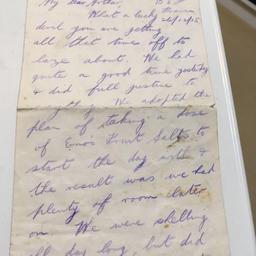 My Dear Arthur,
What a lucky
26/12/15
devil you are getting
all that time off to
laze about. We had
quite a good time yesterday
& did full justice to
We adopted the
plan of taking a dose
of Eno's Fruit Salts to
start the day with &
the result was we had
plenty of room later
on. We were shelling
all day long, but did